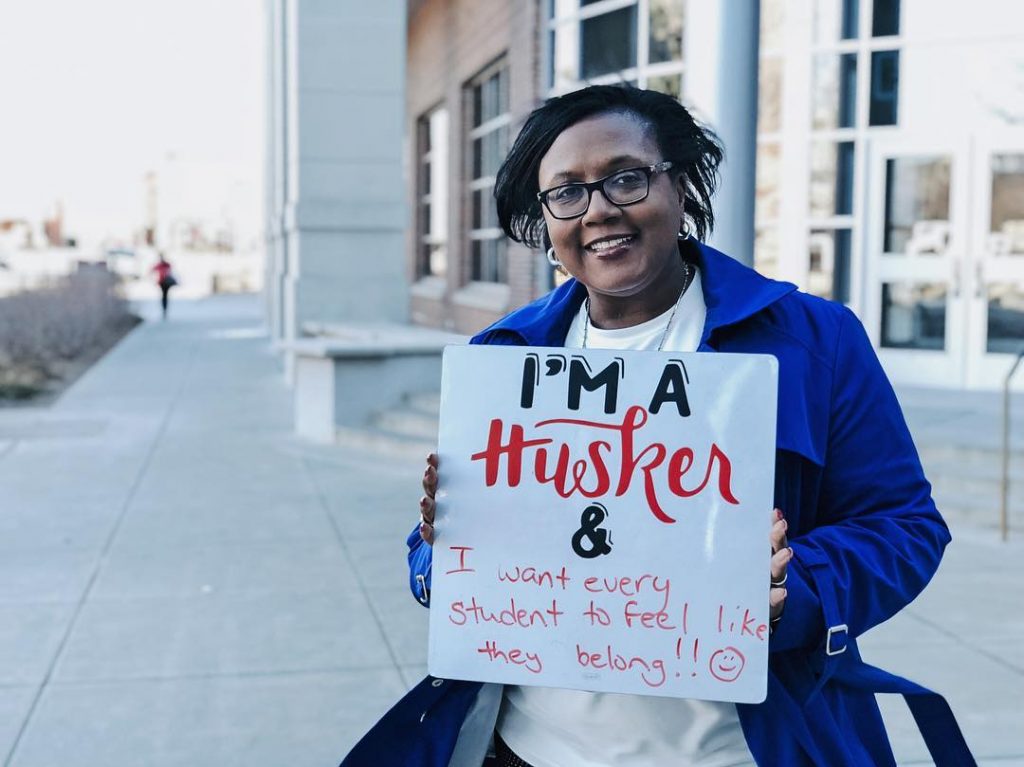 I'M A
Husker
&
I want every
student to feel like
they belong!!